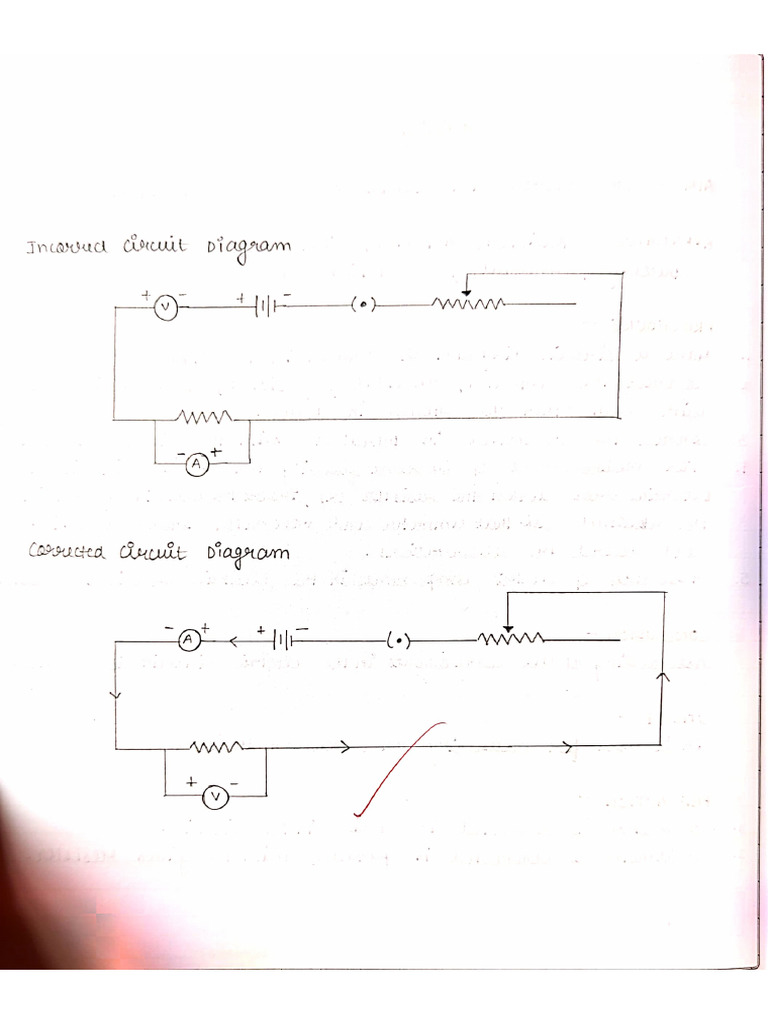 Incorrect Circuit Diagram
+ V - + - (•)
- A +
Corrected Circuit Diagram
- A + + - (•)
+ V -